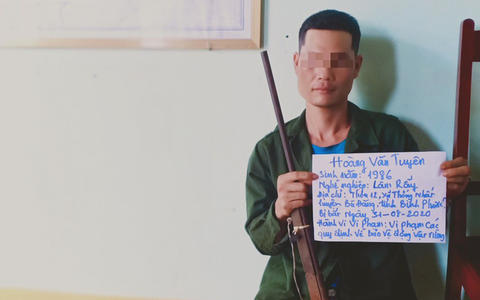 Hoàng Văn Tuyên
Sinh năm: 1986
Nghề nghiệp: Làm Rẫy
Địa chỉ: Thôn 12, xã Thống Nhất
huyện Bù Đăng, tỉnh Bình Phước
Bị bắt ngày 31-07-2020
Hành vi vi phạm: Vi phạm các
quy định về bảo vệ động vật rừng